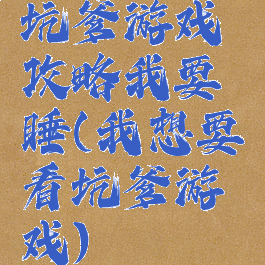 坑爹游戏
攻略我要
睡(我想要
看坑爹游
戏)